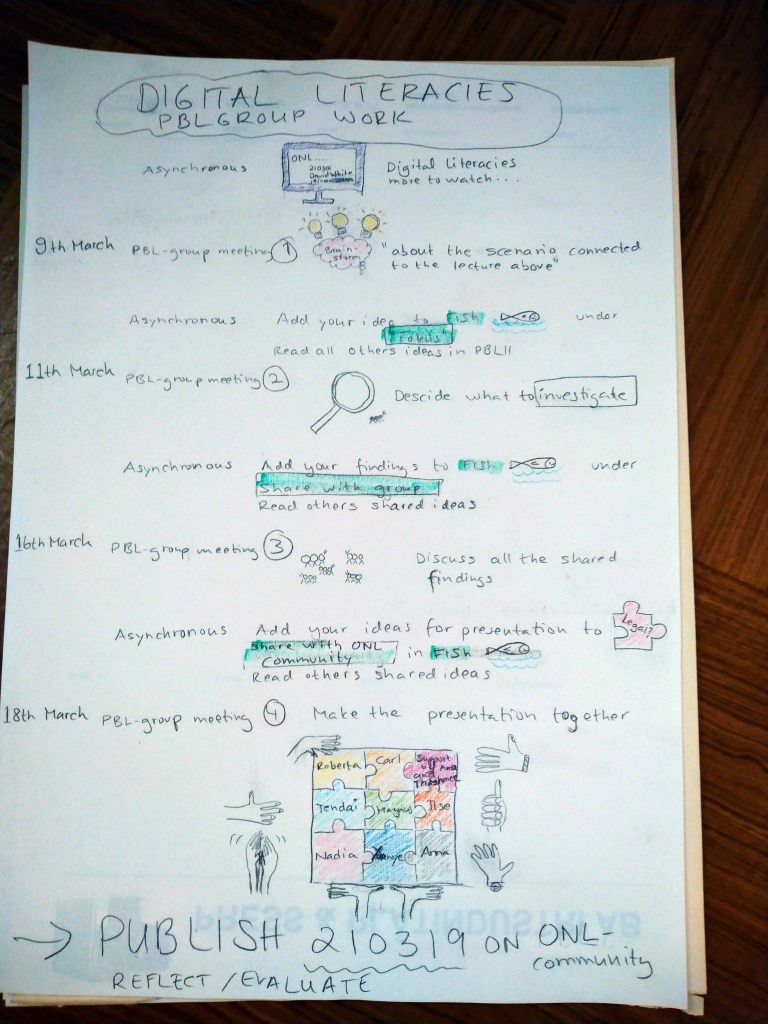 DIGITAL LITERACIES
PBLGROUP WORK
Asynchronous
ONL....
210301
David White
Digital literacies
more to watch...
9th March PBL-group meeting 1
Brain-
storm
"about the scenario connected
to the lecture above"
Asynchronous Add your idea to Fish under
"Fokus"
Read all others ideas in PBL11
11th March PBL-group meeting 2 Descide what to investigate
Asynchronous Add your findings to Fish under
Share with group
Read others shared ideas
16th March PBL-group meeting 3 Discuss all the shared
findings
Asynchronous Add your ideas for presentation to
Legal?
Share with ONL
community in FISh
Read others shared ideas
18th March PBL-group meeting 4 Make the presentation together
Roberta Carl
Support
by Ana
and
Tendai Magnus Ilse
Nadia Anna
→ PUBLISH 210319 ON ONL-
community
REFLECT / EVALUATE
PRESS & PLATINDUSTRI AB